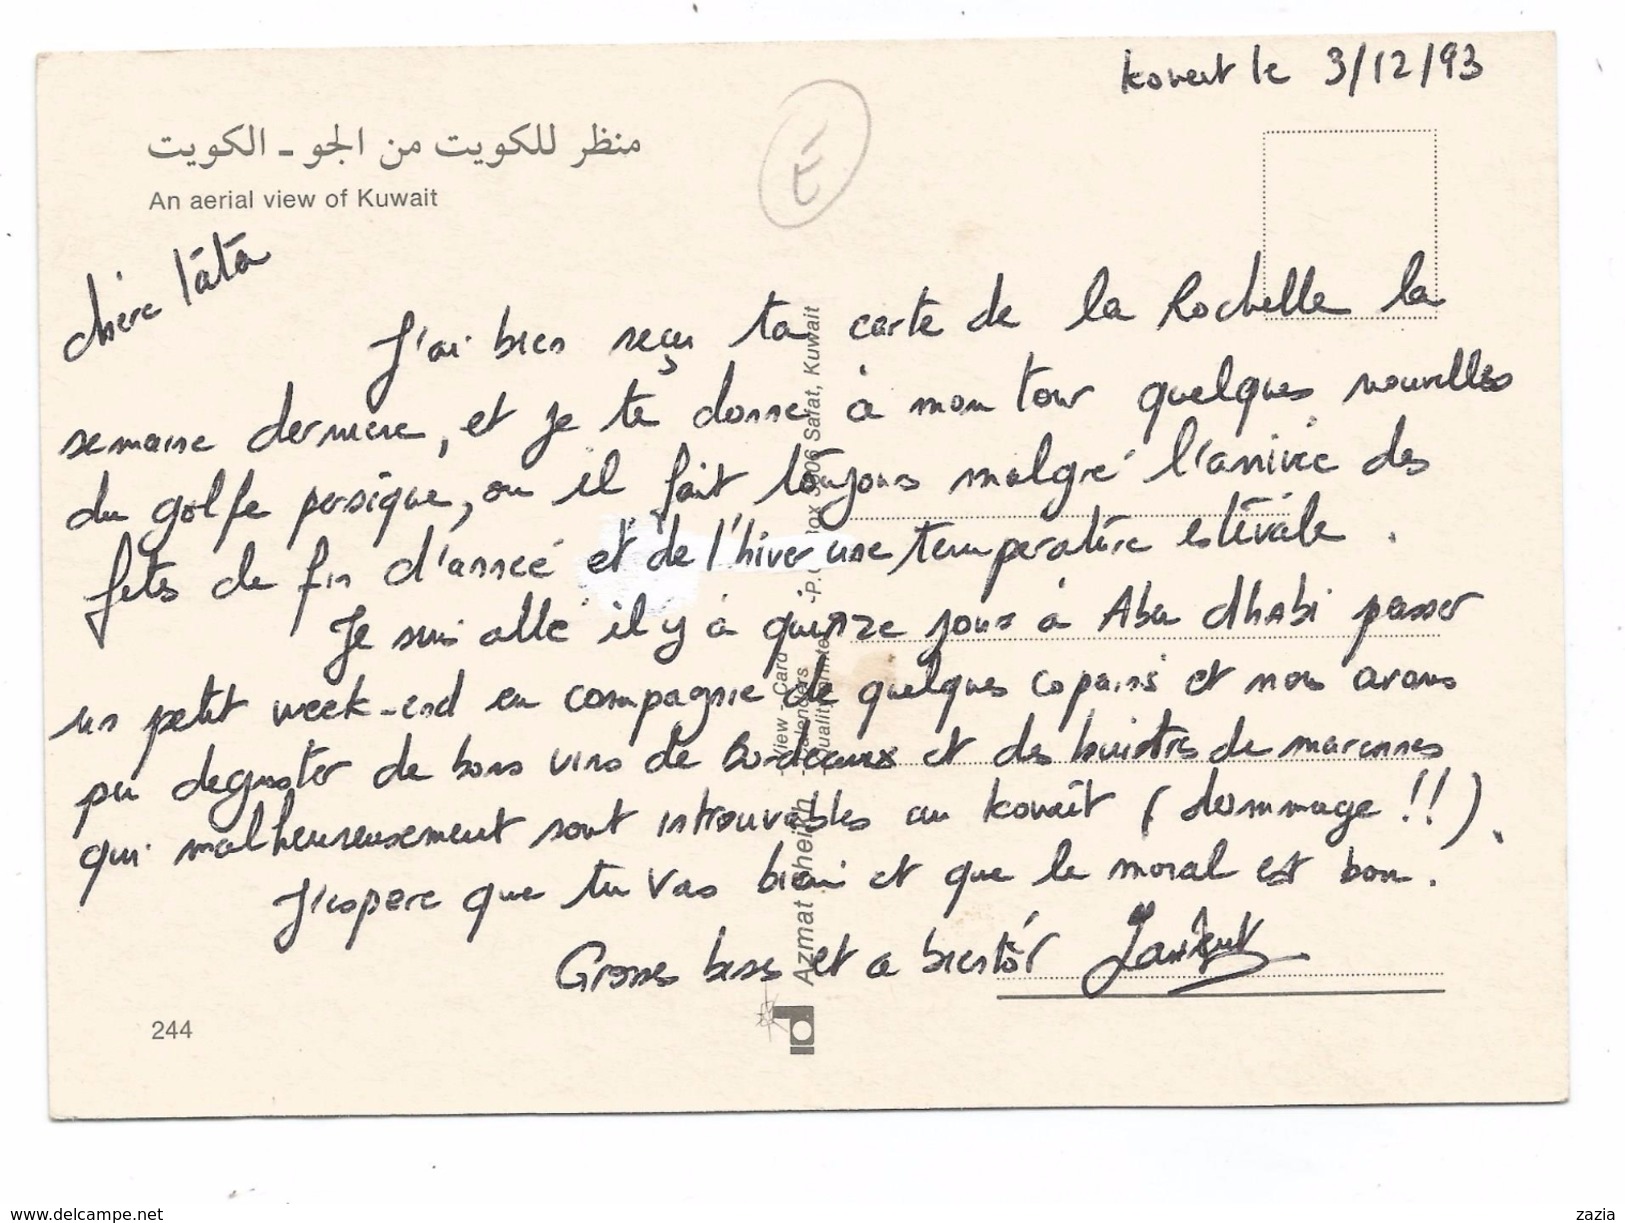 koweit le 3/12/93
منظر للكويت من الجو - الكويت
An aerial view of Kuwait
É
chère Tata
J'ai bien reçu ta carte de la Rochelle la
semaine dernière, et je te donne à mon tour quelques nouvelles
du golfe persique, ou il fait toujours malgré l'arrivée des
fetes de fin d'année et de l'hiver une temperature estivale.
Je suis allé il y à quinze jours à Abu dhabi passer
un petit week-end en compagnie de quelques copains et nous avons
pu deguster de bons vins de Bordeaux et des huistres de marennes
qui malheureusement sont introuvables au koweit (dommage !!).
J'espere que tu vas bien et que le moral est bon.
Grosses bises et a bientôt Laurent
Azmat Sheikh
View - Card
Calenders
Quality Printer
-P.O. Box 5006 Safat, Kuwait
244
www.delcampe.net
zazia